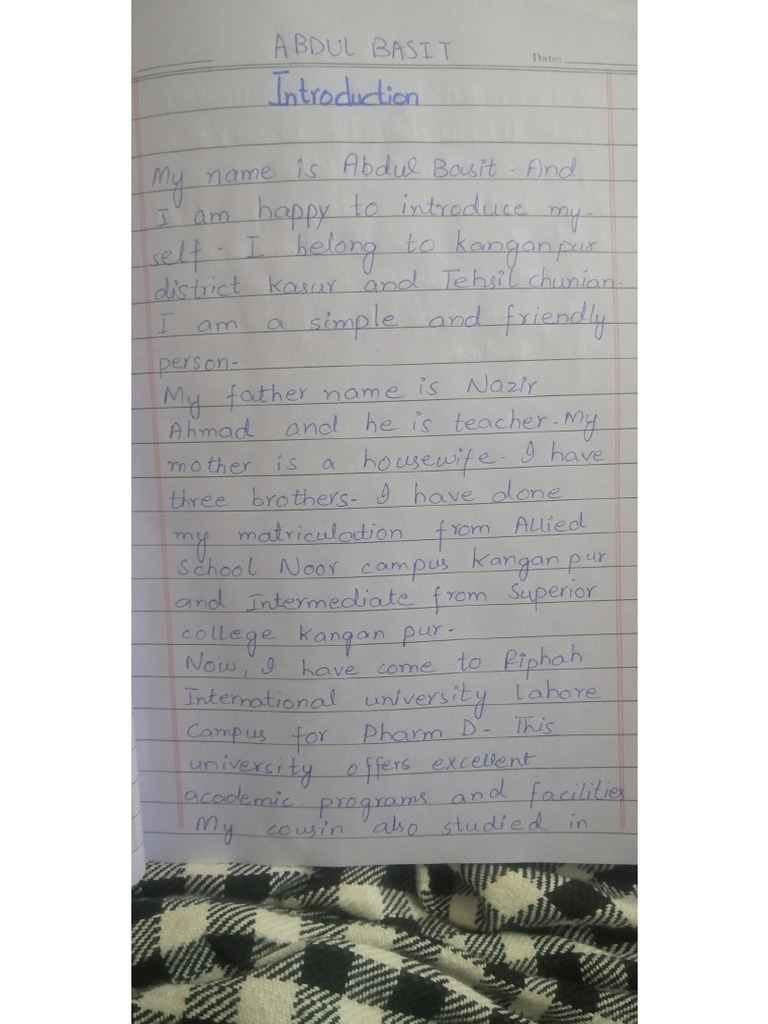 ABDUL BASIT
Date:
Introduction
My name is Abdul Basit. And
I am happy to introduce my-
self. I belong to Kanganpur
district Kasur and Tehsil chunian.
I am a simple and friendly
person.
My father name is Nazir
Ahmad and he is teacher. My
mother is a housewife. I have
three brothers. I have done
my matriculation from Allied
School Noor campus Kangan pur
and Intermediate from Superior
college Kangan pur.
Now, I have come to Riphah
International university Lahore
Campus for Pharm D. This
university offers excellent
academic programs and facilities
My cousin also studied in